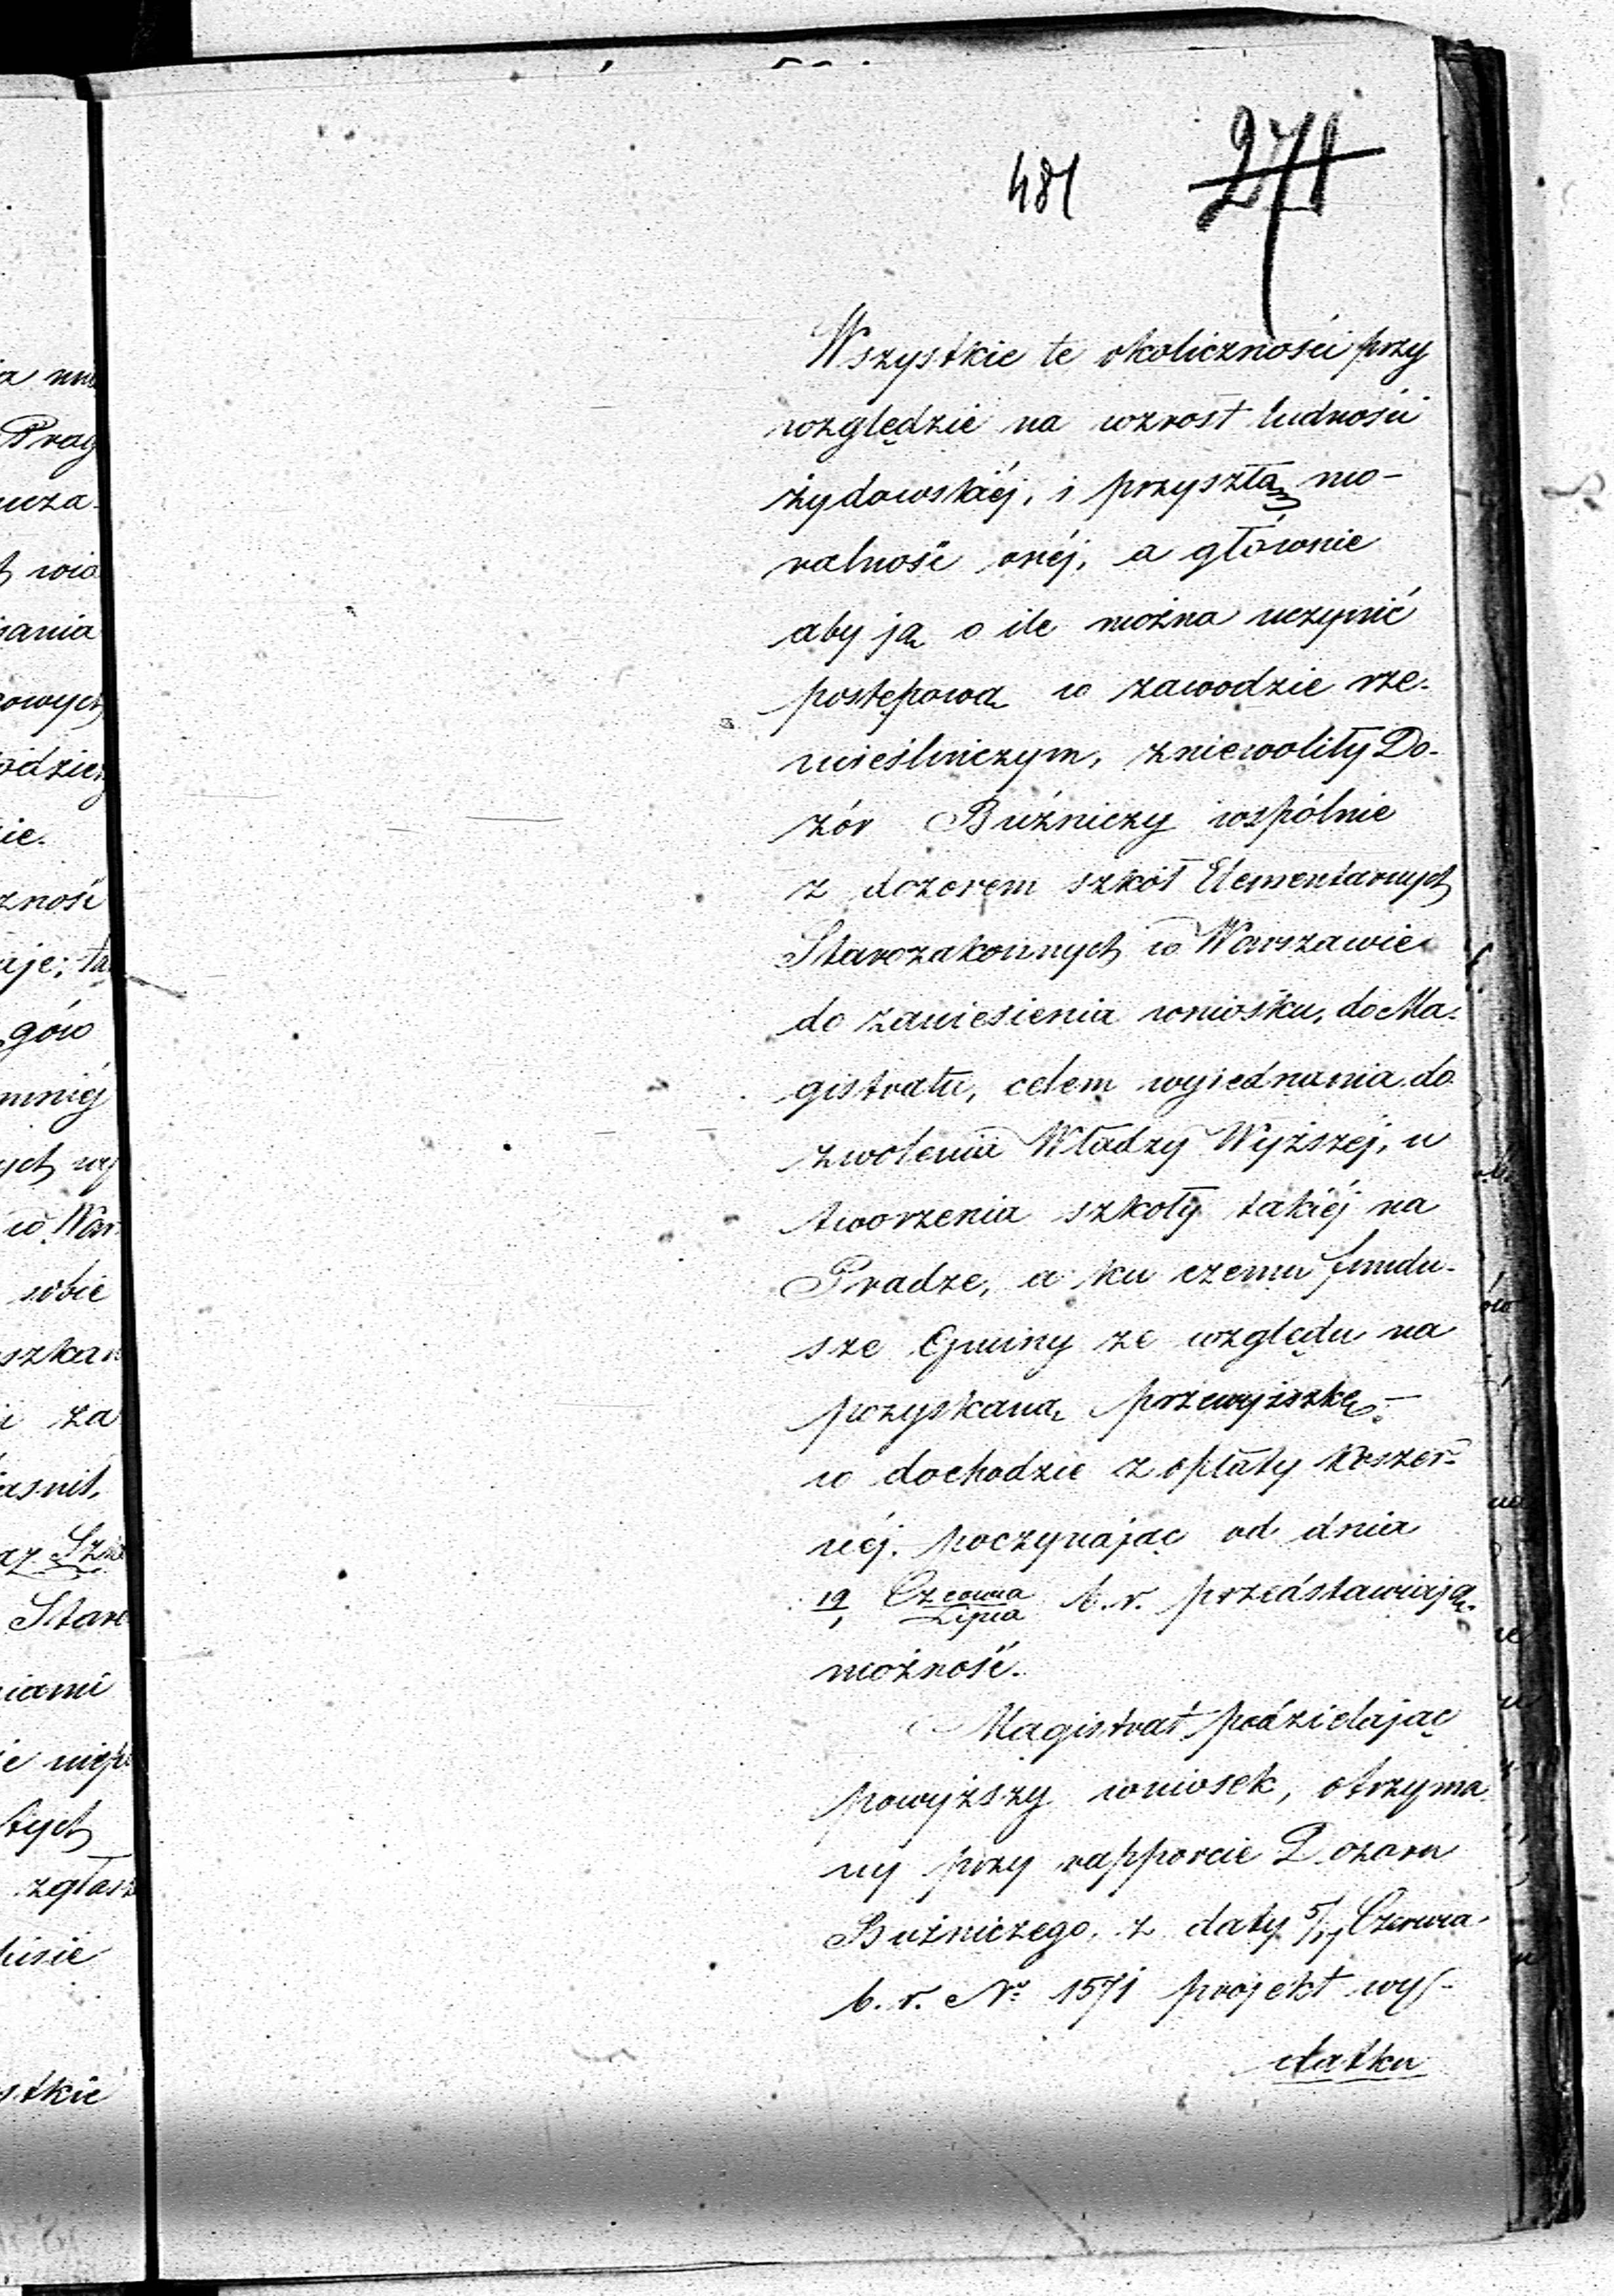 481 271
Wszystkie te okoliczności przy
względzie na wzrost ludności
żydowskiéj, i przyszłą mo-
ralność onéj, a głównie
aby ją o ile można uczynić
postępową w zawodzie rze-
mieślniczym, zniewoliły Do-
zór Bużniczy wspólnie
z dozorem szkół Elementarnych
Starozakonnych w Warszawie
do zaniesienia wniosku, do Ma-
gistratu, celem wyjednania do
zwolenia Władzy Wyższéj, u
tworzenia szkoły takiéj na
Pradze, a ku czemu fundu-
sze Gminy ze względu na
pozyskaną przewyżkę
w dochodzie z opłaty koszer-
néj. poczynając od dnia
19/1 Czerwca/Lipca b. r. przedstawiają
możność.
Magistrat podzielając
powyższy wniosek, otrzyma
ny przy rapporcie Dozoru
Bużniczego, z daty 5/17 Czerwca
b. r. No 1571 projekt wy-
datku
ia
Prag
ucza-
wia
sania
cowych
ie.
zność
aje; ta
gów
mniéj
ych wy
w War
sobie
szkan
i za
asnił,
Staro
niami
tych
zgłasz
usie
stkie